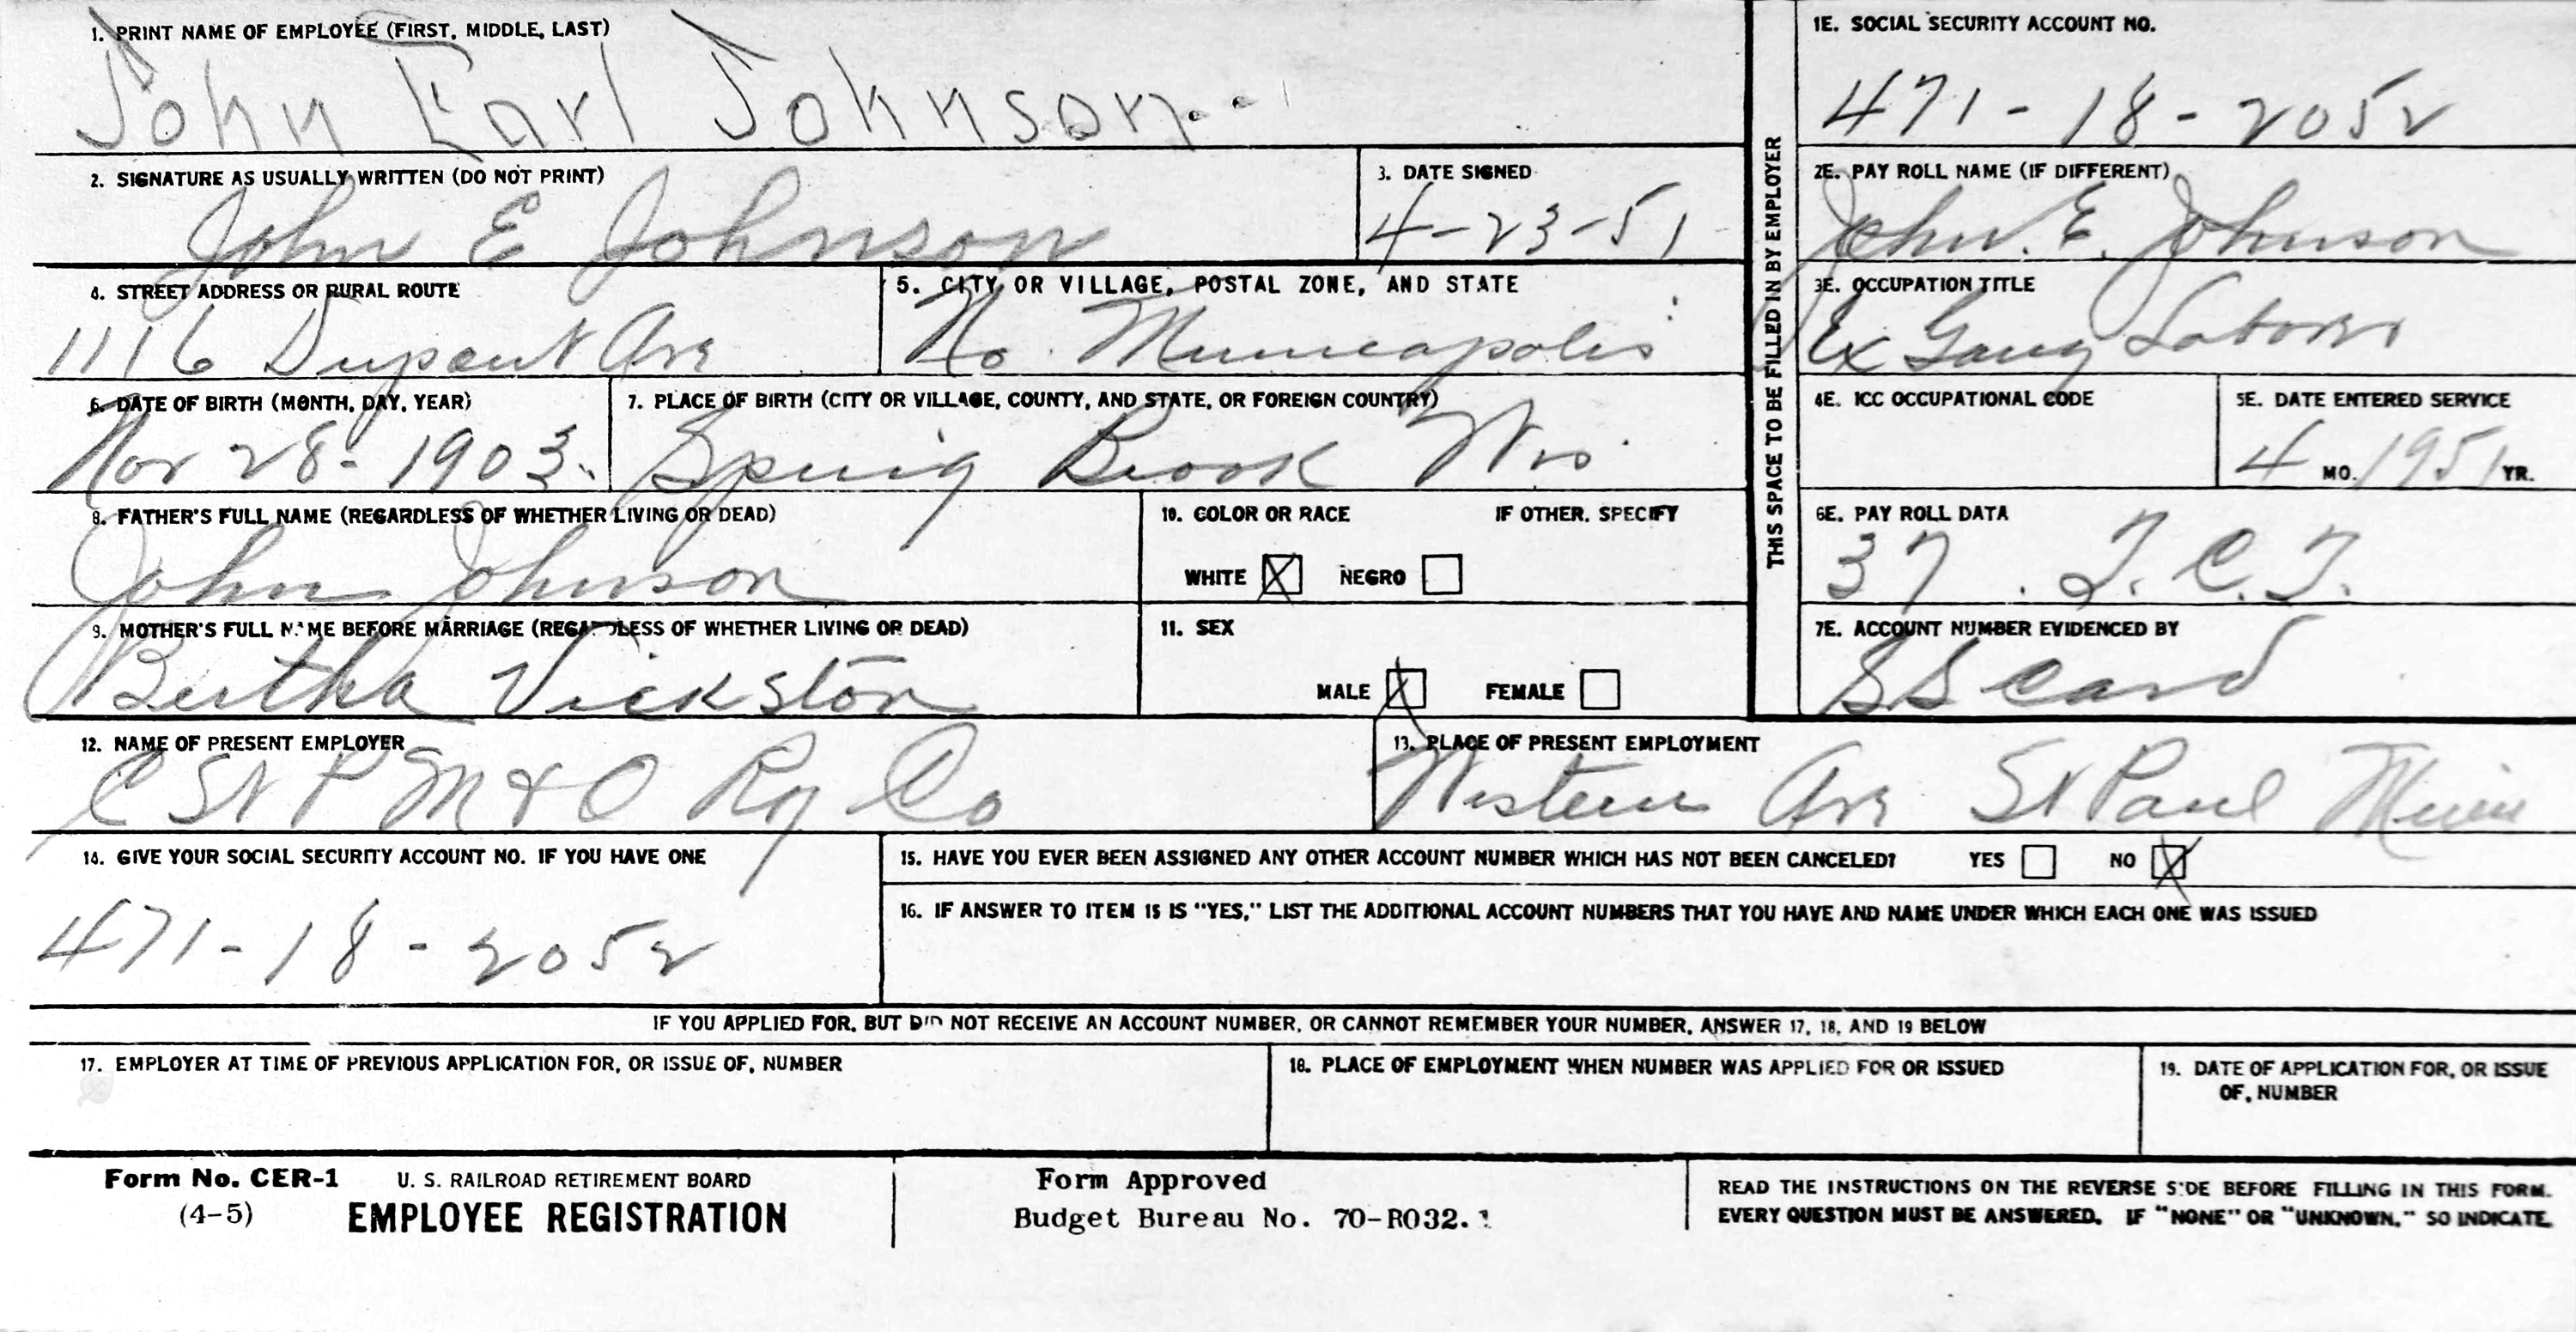 1. PRINT NAME OF EMPLOYEE (FIRST, MIDDLE, LAST)
John Earl Johnson
1E. SOCIAL SECURITY ACCOUNT NO.
471-18-2052
2. SIGNATURE AS USUALLY WRITTEN (DO NOT PRINT)
John E Johnson
3. DATE SIGNED
4-23-51
2E. PAY ROLL NAME (IF DIFFERENT)
John. E. Johnson
4. STREET ADDRESS OR RURAL ROUTE
1116 Dupont Ave
5. CITY OR VILLAGE, POSTAL ZONE, AND STATE
No. Minneapolis
3E. OCCUPATION TITLE
Ex Gang Laborer
6. DATE OF BIRTH (MONTH, DAY, YEAR)
Nov 28-1903.
7. PLACE OF BIRTH (CITY OR VILLAGE, COUNTY, AND STATE, OR FOREIGN COUNTRY)
Spring Brook Wis
4E. ICC OCCUPATIONAL CODE
5E. DATE ENTERED SERVICE
4 MO. 1951 YR.
8. FATHER'S FULL NAME (REGARDLESS OF WHETHER LIVING OR DEAD)
John Johnson
10. COLOR OR RACE IF OTHER, SPECIFY
WHITE X NEGRO
6E. PAY ROLL DATA
37. T.C.T.
9. MOTHER'S FULL NAME BEFORE MARRIAGE (REGARDLESS OF WHETHER LIVING OR DEAD)
Bertha Vickston
11. SEX
MALE X FEMALE
7E. ACCOUNT NUMBER EVIDENCED BY
SS Card
THIS SPACE TO BE FILLED IN BY EMPLOYER
12. NAME OF PRESENT EMPLOYER
C St P M & O Ry Co
13. PLACE OF PRESENT EMPLOYMENT
Western Ave St Paul Minn
14. GIVE YOUR SOCIAL SECURITY ACCOUNT NO. IF YOU HAVE ONE
471-18-2052
15. HAVE YOU EVER BEEN ASSIGNED ANY OTHER ACCOUNT NUMBER WHICH HAS NOT BEEN CANCELED? YES NO X
16. IF ANSWER TO ITEM 15 IS "YES," LIST THE ADDITIONAL ACCOUNT NUMBERS THAT YOU HAVE AND NAME UNDER WHICH EACH ONE WAS ISSUED
IF YOU APPLIED FOR, BUT DID NOT RECEIVE AN ACCOUNT NUMBER, OR CANNOT REMEMBER YOUR NUMBER, ANSWER 17, 18, AND 19 BELOW
17. EMPLOYER AT TIME OF PREVIOUS APPLICATION FOR, OR ISSUE OF, NUMBER
18. PLACE OF EMPLOYMENT WHEN NUMBER WAS APPLIED FOR OR ISSUED
19. DATE OF APPLICATION FOR, OR ISSUE
OF, NUMBER
Form No. CER-1
(4-5)
U. S. RAILROAD RETIREMENT BOARD
EMPLOYEE REGISTRATION
Form Approved
Budget Bureau No. 70-R032.1
READ THE INSTRUCTIONS ON THE REVERSE SIDE BEFORE FILLING IN THIS FORM.
EVERY QUESTION MUST BE ANSWERED. IF "NONE" OR "UNKNOWN," SO INDICATE.